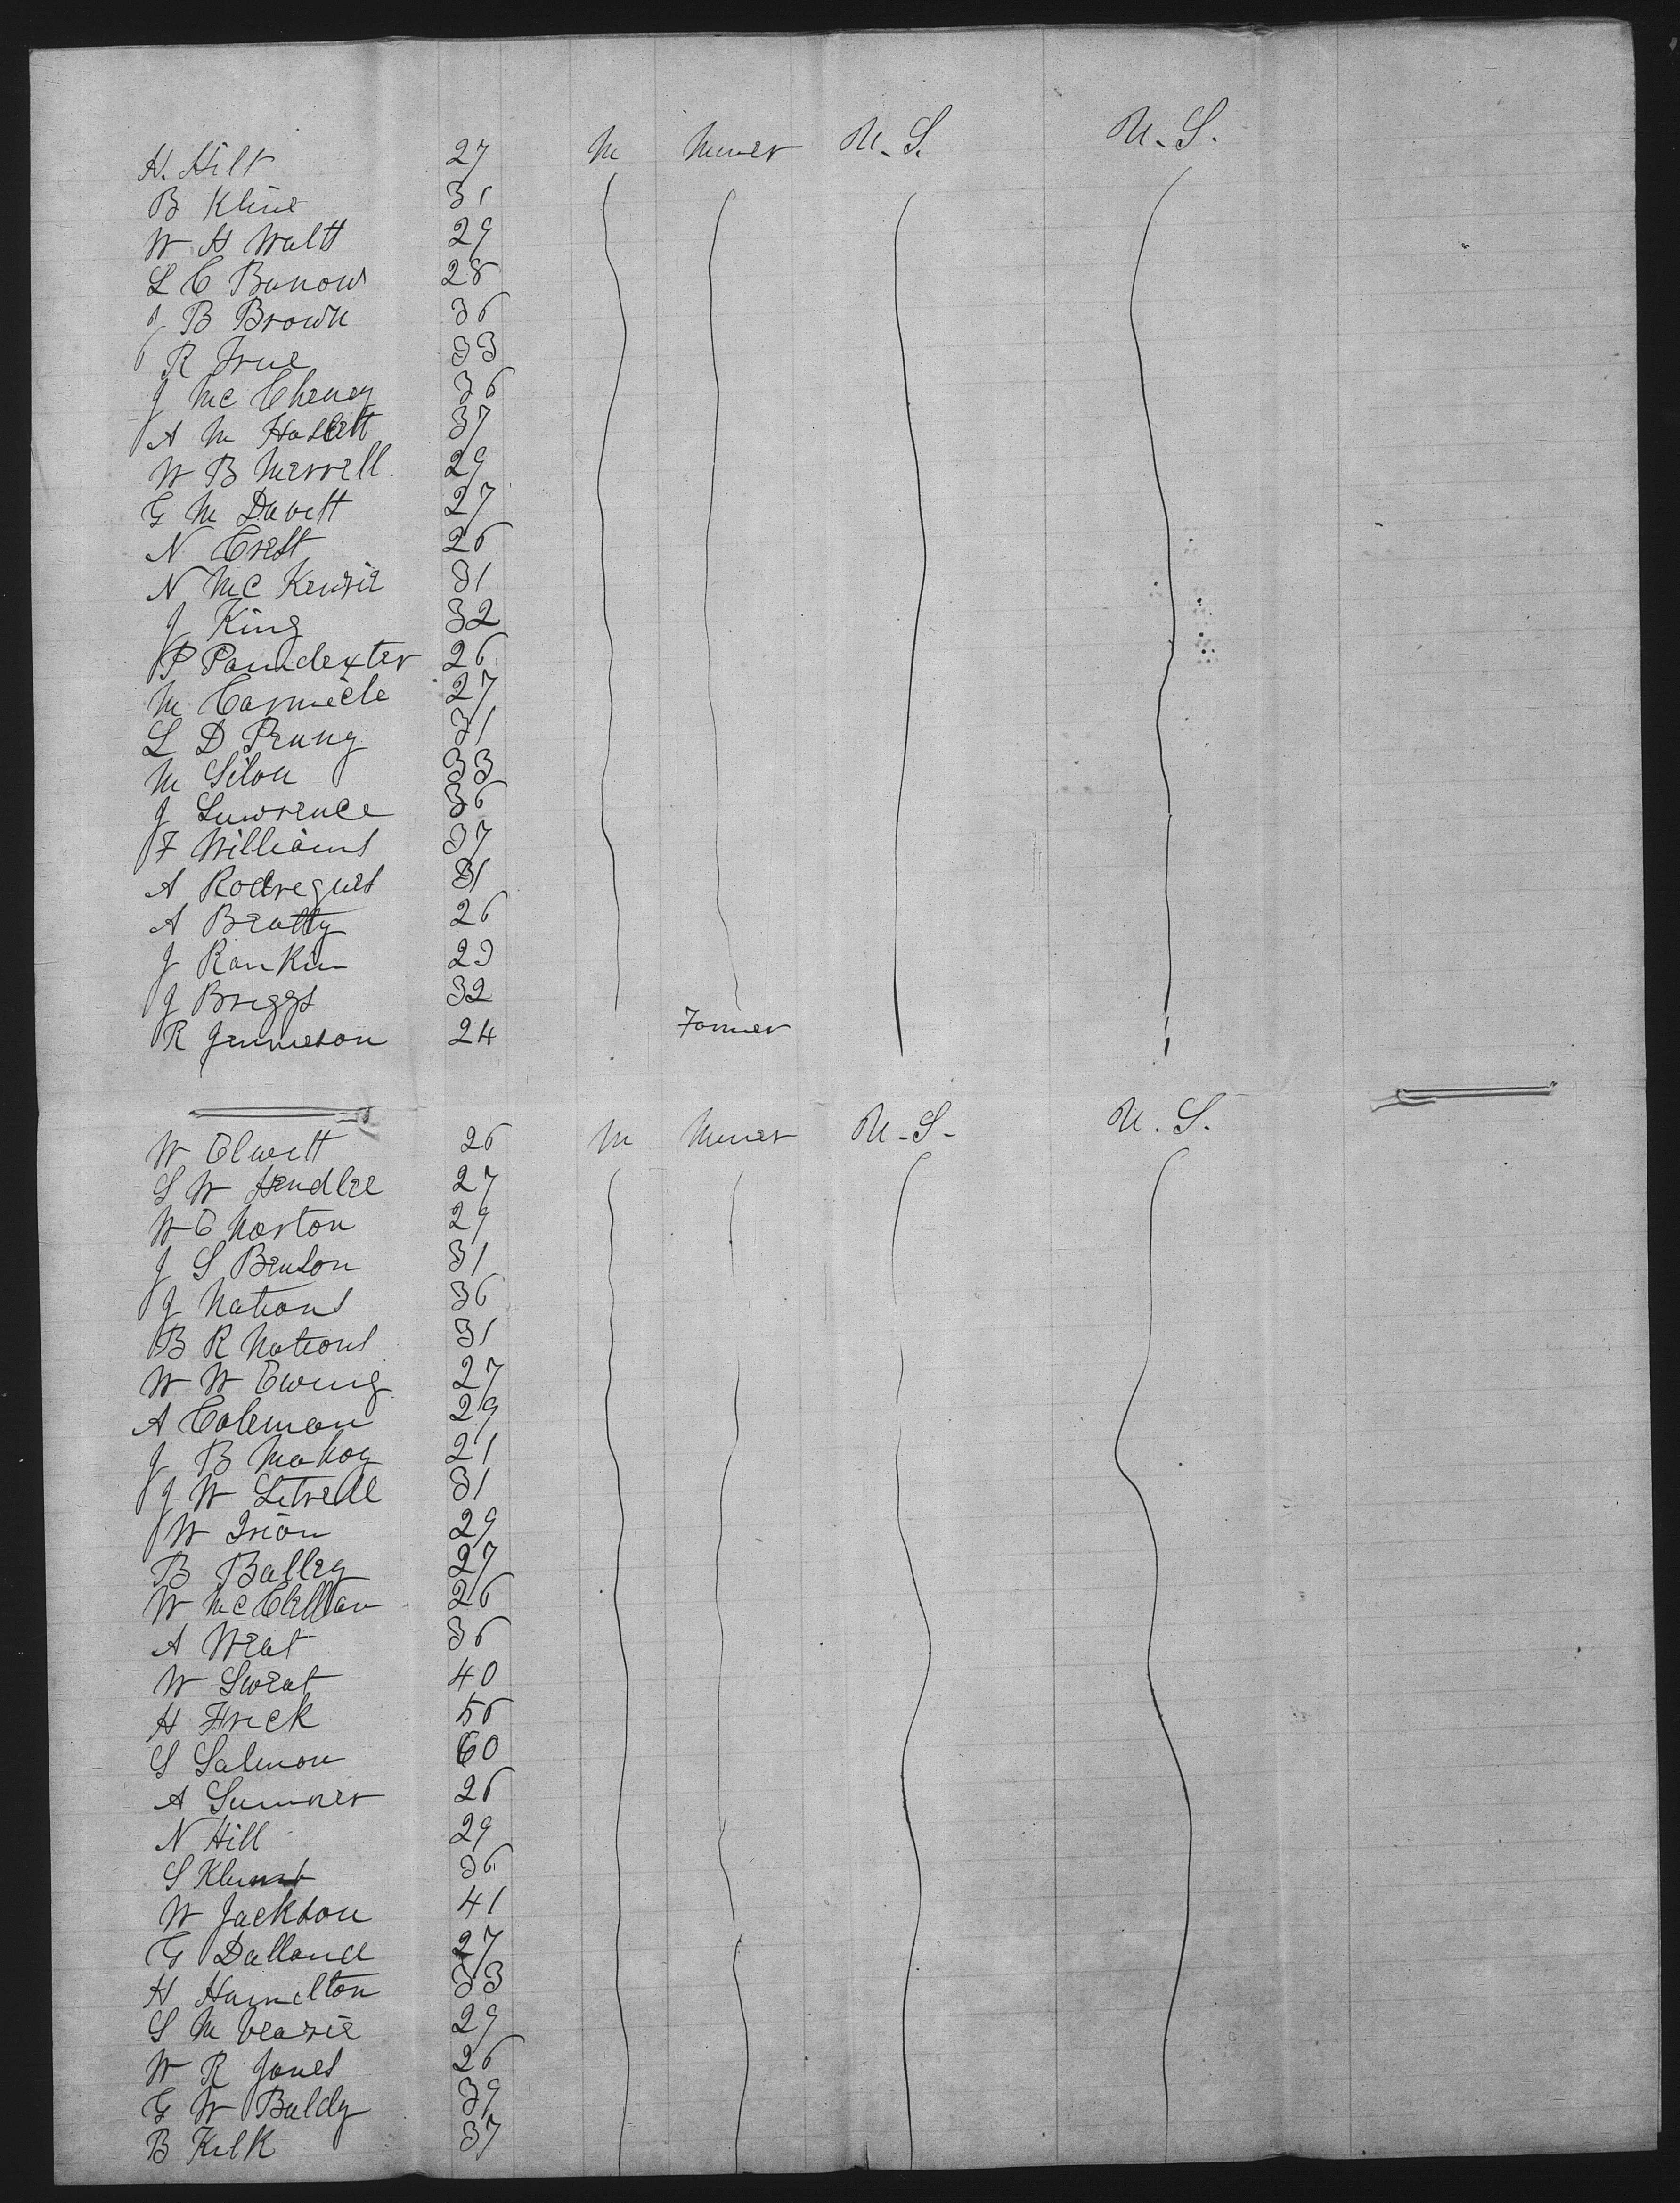 H. Hilt 27 M Miner U.S. U.S.
B Kline 31
W H Waltt 29
L C Banows 28
J B Brown 36
R True 33
J Mc Cheney 36
A M Haslett 37
W B Merrell 29
G M Davett 27
N Crest 26
N Mc Kenzie 31
J King 32
P Poindexter 26
M Carmicle 27
L D Prung 31
M Silou 33
J Lawrence 36
F Williams 37
A Rodregues 31
A Beatty 26
J Rankin 23
J Briggs 32
R Jameson 24 Farmer
W Clwett 26 M Miner U.S. U.S.
S W Hendlee 27
W C Norton 29
J S Benson 31
J Nations 36
B R Nations 31
W W Ewing 27
A Coleman 29
J B Mahoy 21
J W Litrell 31
W Irion 29
B Balley 27
W McClellan 26
A West 36
W Sweat 40
H Frick 56
S Salmon 60
A Sumner 26
N Hill 29
S 36
W Jackson 41
G Dallance 27
H Hamelton 33
S M Veazie 29
W R Jones 26
G W Baldy 39
B Kelk 37